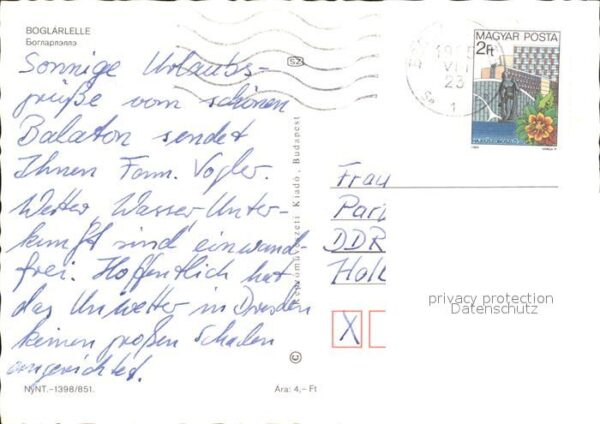 BOGLÁRLELLE
Богларлэллэ
Sonnige Urlaubs-
grüße vom schönen
Balaton sendet
Ihnen Fam. Vogler.
Wetter, Wasser Unter-
kunft sind einwand-
frei. Hoffentlich hat
das Unwetter in Dresden
keinen großen Schaden
angerichtet.
NyNT.–1398/851.
Ára: 4,– Ft
Képzőművészeti Kiadó, Budapest
MAGYAR POSTA
2Ft
VII
23
1
Frau
DDR
X
privacy protection
Datenschutz